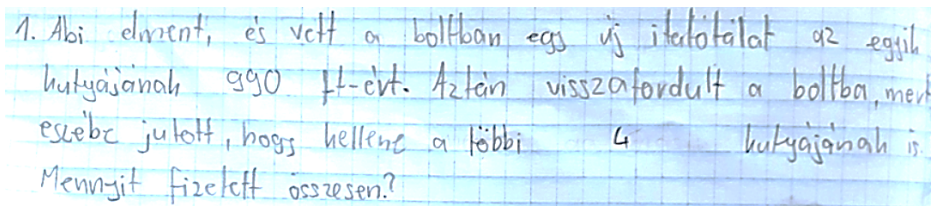 1. Abi elment, és vett a boltban egy új itatótálat az egyik
kutyájának 990 Ft-ért. Aztán visszafordult a boltba, mert
eszébe jutott, hogy kellene a többi 4 kutyájának is.
Mennyit fizetett összesen?